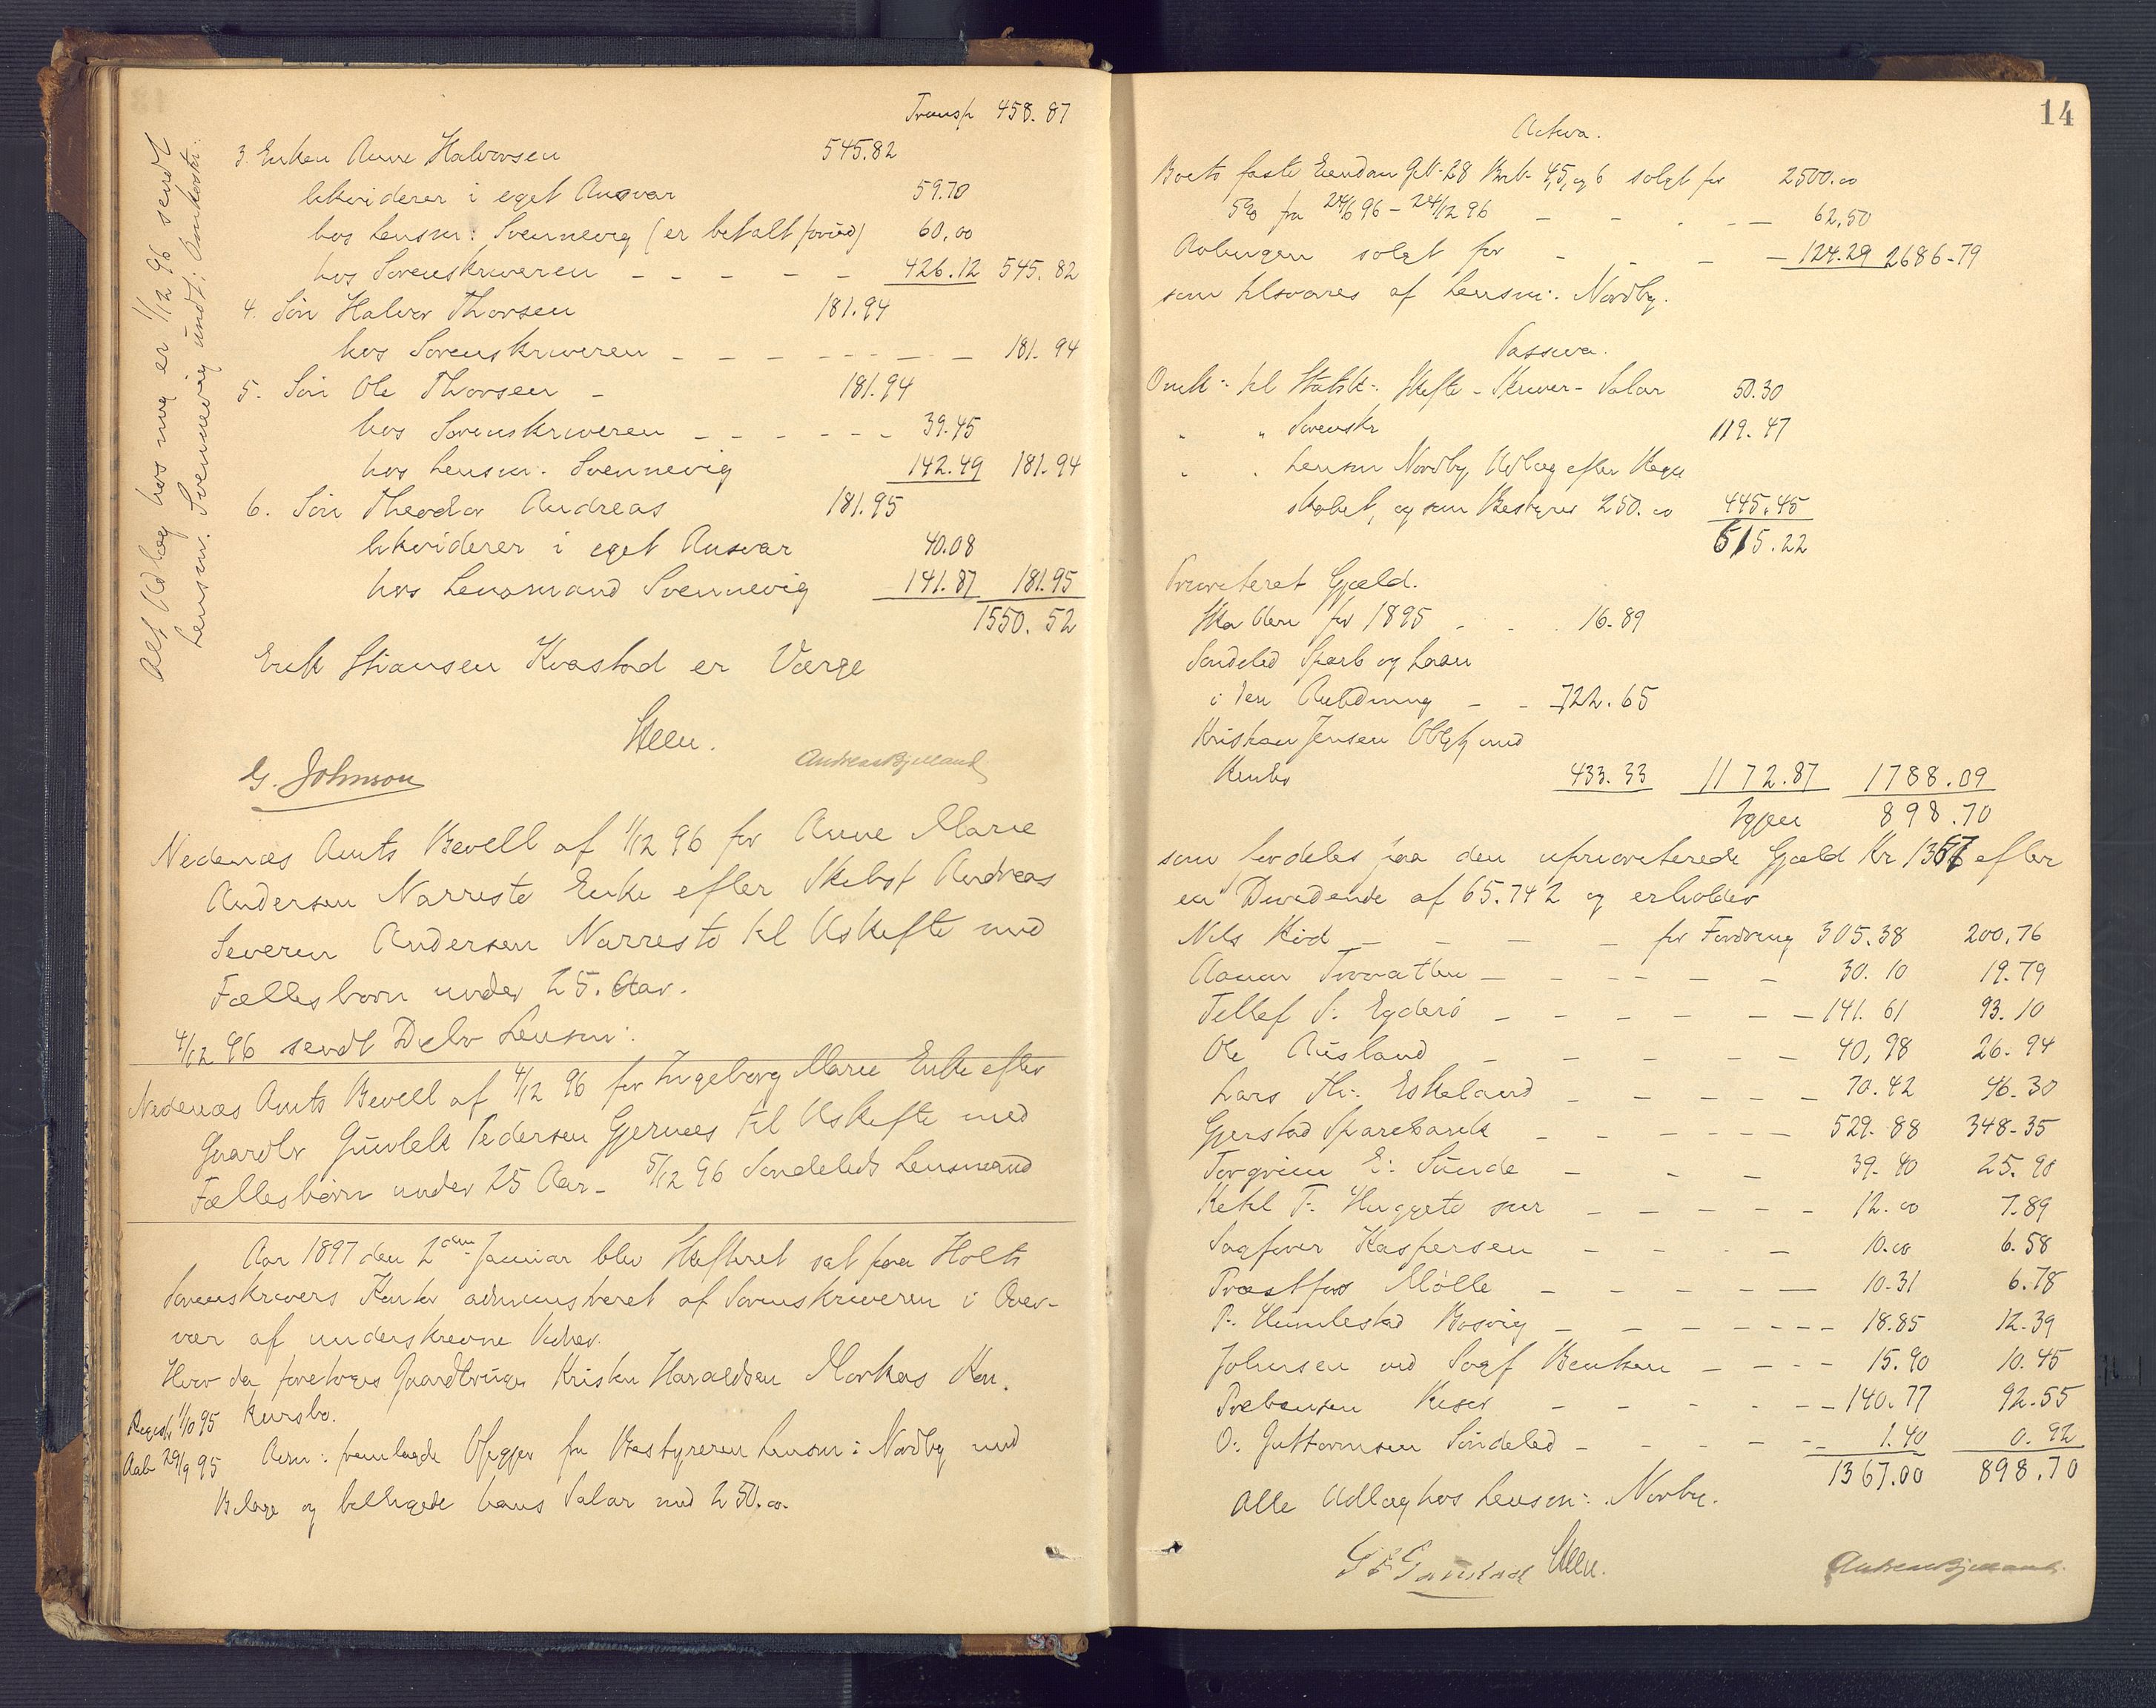 Transp 458.87
3. Enken Anne Halvorsen 545.82
likviderer i eget Ansvar 59.70
hos Lensm: Svennevig (er betalt forud) 60,00
hos Sorenskriveren - - - - - 426.12 545.82
4. Søn Halvor Thorsen 181.94
hos Sorenskriveren - - - - - - - 181.94
5. Søn Ole Thorsen - 181.94
hos Sorenskriveren - - - - - - 39.45
hos Lensm. Svennevig 142.49 181.94
6. Søn Theodor Andreas 181.95
likviderer i eget Ansvar 40.08
hos Lensmand Svennevig 141.87 181.95
1550.52
Alt Udlæg hos mig er 1/12 96 sendt
Lensm. Svennevig undt:
Erik Stiansen Kvastad er Værge
Steen.
G. Johnson
Andreas Bjelland
Nedenæs Amts Bevell af 1/12 96 for Anne Marie
Andersen Narresto Enke efter Skibsf Andreas
Severin Andersen Narresto til Uskifte med
Fællesbørn under 25. Aar.
4/12 96 sendt Lensm:
Nedenæs Amts Bevell af 4/12 96 for Ingeborg Marie Enke efter
Gaardbr Gunleik Pedersen Gjernes til Uskifte med
Fællesbørn under 25 Aar - 5/12 96 Søndeleds Lensmand
Aar 1897 den 2den Januar blev Skifteret sat paa Holts
Sorenskrivers Kontor administreret af Sorenskriveren i Over-
vær af underskrevne Vidner.
Hvor da foretoges Gaardbruger Kristen Haraldsen Kon-
kursbo.
Registr 1/10 95
Aab 29/9 95 Adm: fremlagde Opgjør fra Bestyreren Lensm: Nordby med
Bilage og billigede hans Salær med 250.00
14
Activa.
Boets faste Eiendom Gb. 28 Brb. 4,5, og 6 solgt for 2500.00
5% fra 24/6 96 - 24/12 96 - - - - 62,50
Avlingen solgt for - - - - 124.29 2686-79
som tilsvares af Lensm: Nordby.
Passiva.
Omk: til Statsk: Skifte - Skriver - Salær 50.30
" " Sorenskr 119.47
" " Lensm Nordby, Udlæg efter Regn
skabet, og som Bestyrer 250.00 445.45
615.22
Prioriteret Gjæld.
Skatten for 1895 - - 16.89
Søndeled Spareb og Laan
i den Anledning - - 722.65
Kristian Jensen Obligt med
Renter 433.33 1172.87 1788.09
Igjen 898.70
som fordeles paa den uprioriterede Gjæld Kr 1367 efter
en Dividende af 65.742 og erholder
Nils Hød - - - - for Fordring 305.38 200.76
Aanon Tvovatten - - - - - - 30.10 19.79
Tellef S. Egderø - - - - - - 141.61 93.10
Ole Ausland - - - - - 40,98 26.94
Lars Th: Eskeland - - - - - 70.42 46.30
Gjerstad Sparebank - - - - - - 529.88 348-35
Torgrim E: Sunde - - - 39.40 25.90
Ketil T. Huggeto sen - - - - - 12.00 7.89
Sagfører Kaspersen - - - - 10.00 6.58
Provstfor Mølle - - - - - 10.31 6.78
P. Humlestad Bosvig - - - - - - 18.85 12.39
Johnsen ved Sagf Bentsen - - - - 15.90 10.45
Prebensen Risør - - - - - - 140.77 92.55
O: Guttormsen Søndeled - - - - - 1.40 0.92
1367.00 898.70
Alle Udlæg hos Lensm: Norby.
Steen.
Andreas Bjelland.